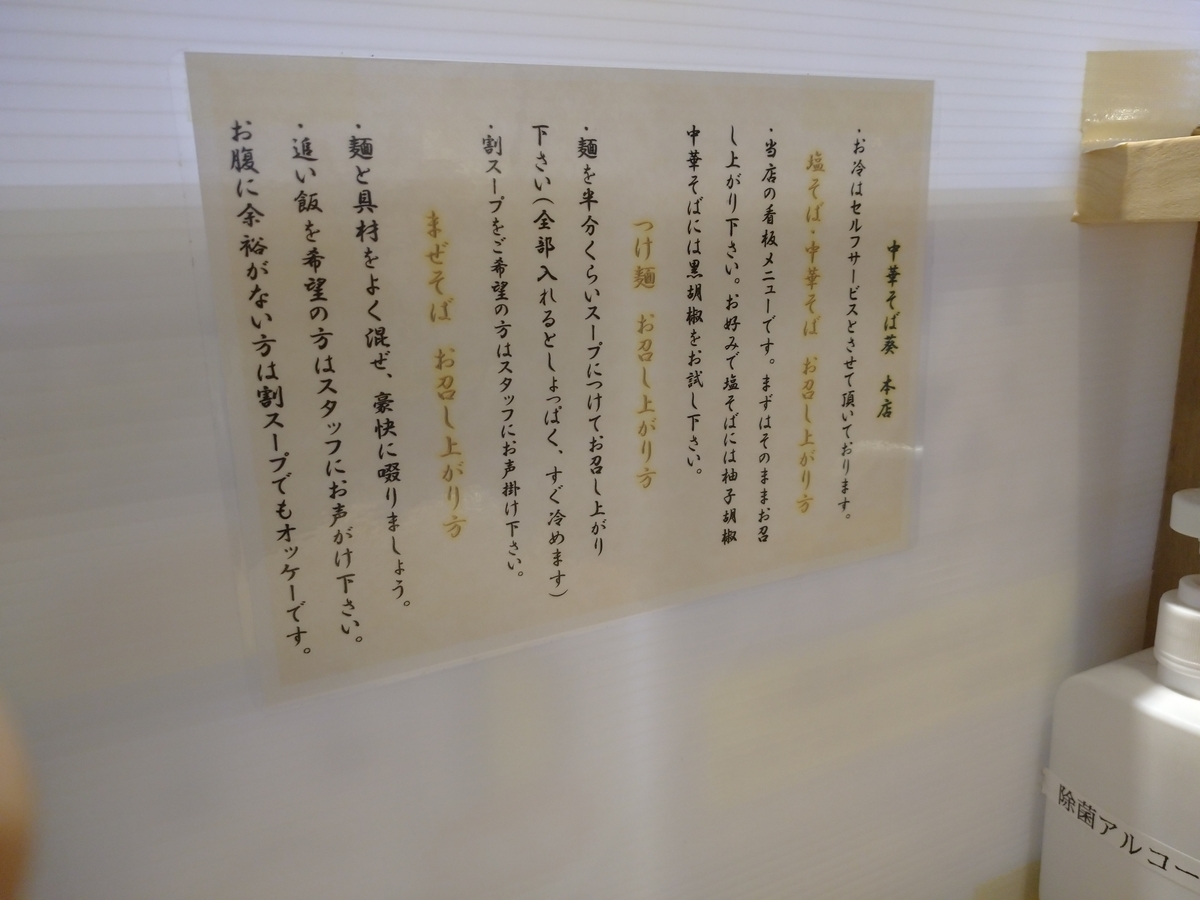 中華そば葵　本店
・お冷はセルフサービスとさせて頂いております。
塩そば・中華そば　お召し上がり方
・当店の看板メニューです。まずはそのままお召
し上がり下さい。お好みで塩そばには柚子胡椒
中華そばには黒胡椒をお試し下さい。
つけ麺　お召し上がり方
・麺を半分くらいスープにつけてお召し上がり
下さい（全部入れるとしょっぱく、すぐ冷めます）
・割スープをご希望の方はスタッフにお声掛け下さい。
まぜそば　お召し上がり方
・麺と具材をよく混ぜ、豪快に啜りましょう。
・追い飯を希望の方はスタッフにお声がけ下さい。
お腹に余裕がない方は割スープでもオッケーです。
除菌アルコー